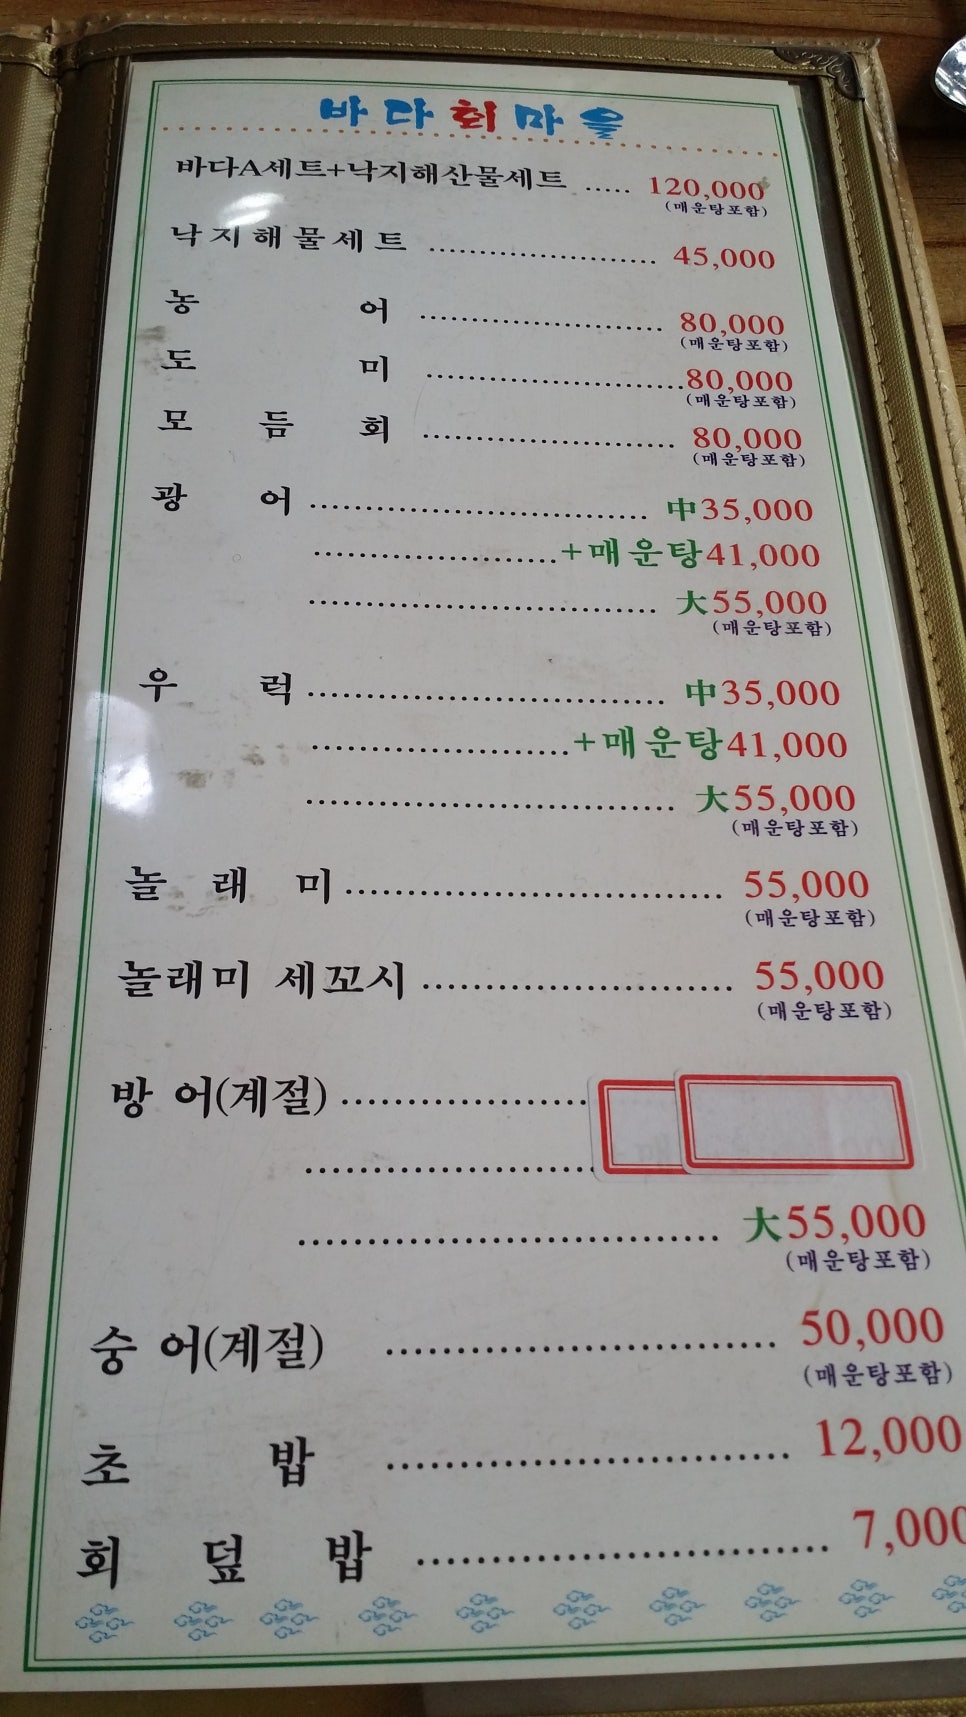 바다회마을
바다A세트+낙지해산물세트 ..... 120,000
(매운탕포함)
낙지해물세트 ..................... 45,000
농어 ......................... 80,000
(매운탕포함)
도미 .........................80,000
(매운탕포함)
모듬회 ......................... 80,000
(매운탕포함)
광어 ............................. 中35,000
.....................+매운탕41,000
.............................. 大55,000
(매운탕포함)
우럭 .............................. 中35,000
.....................+매운탕41,000
.............................. 大55,000
(매운탕포함)
놀래미 .............................. 55,000
(매운탕포함)
놀래미 세꼬시 ........................ 55,000
(매운탕포함)
방어(계절) ....................
.......................
............................. 大55,000
(매운탕포함)
숭어(계절) ........................... 50,000
(매운탕포함)
초밥 ........................... 12,000
회덮밥 ............................ 7,000